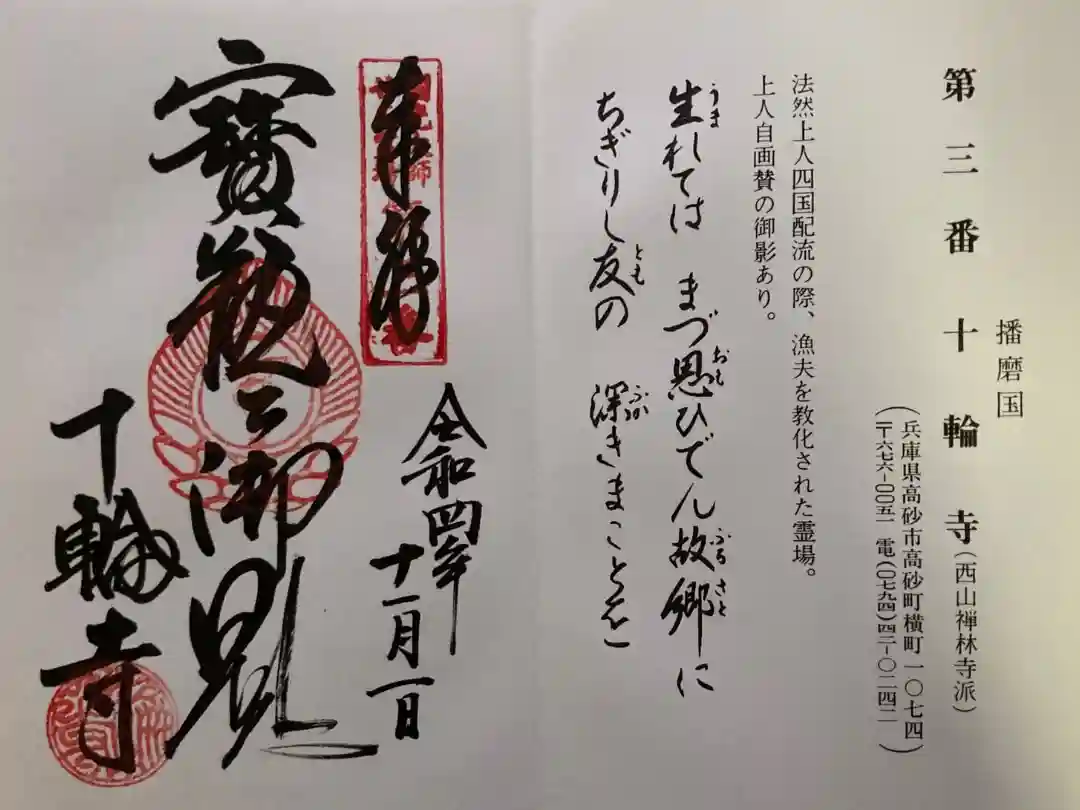 播磨国
第三番十輪寺(西山禅林寺派)
(兵庫県高砂市高砂町横町一〇七四)
(〒六七六-〇〇五一 電(〇七九四)四二-〇二四二)
法然上人四国配流の際、漁夫を教化された霊場。
上人自画賛の御影あり。
生れては まづ思ひでん故郷に
うま おも ふるさと
ちぎりし友の 深きまことを
とも ふか
奉拝
令和四年
十一月一日
寶瓶之御影
十輪寺